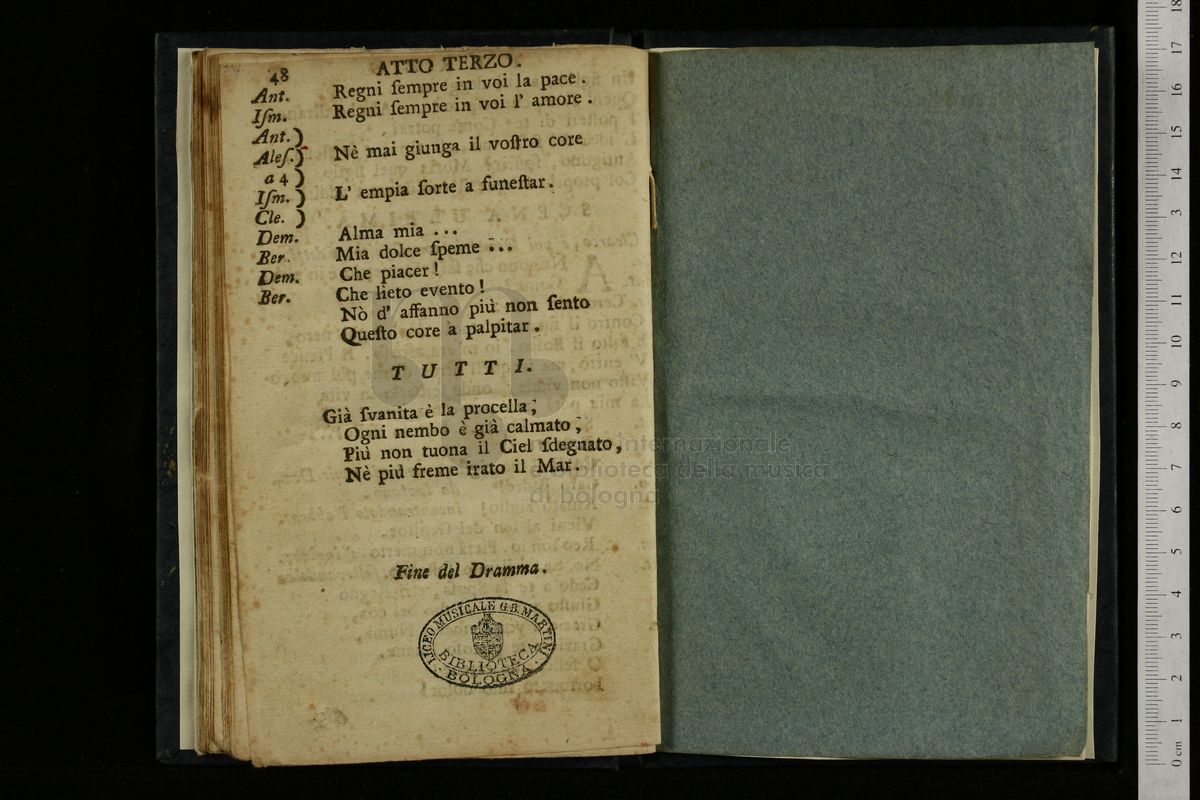 48 ATTO TERZO.
Ant. Regni ſempre in voi la pace.
Iſm. Regni ſempre in voi l' amore.
Ant.)
Aleſ.) Nè mai giunga il voſtro core
a 4)
Iſm.) L' empia ſorte a funeſtar.
Cle. )
Dem. Alma mia ...
Ber. Mia dolce ſpeme ...
Dem. Che piacer!
Ber. Che lieto evento!
Nò d' affanno più non ſento
Queſto core a palpitar.
TUTTI.
Già ſvanita è la procella;
Ogni nembo è già calmato;
Più non tuona il Ciel ſdegnato,
Nè più freme irato il Mar.
Fine del Dramma.
LICEO MUSICALE G.B. MARTINI
BIBLIOTECA
BOLOGNA
museo internazionale
e biblioteca della musica
di bologna
18
17
16
15
14
13
12
11
10
9
8
7
6
5
4
3
2
1
0 cm